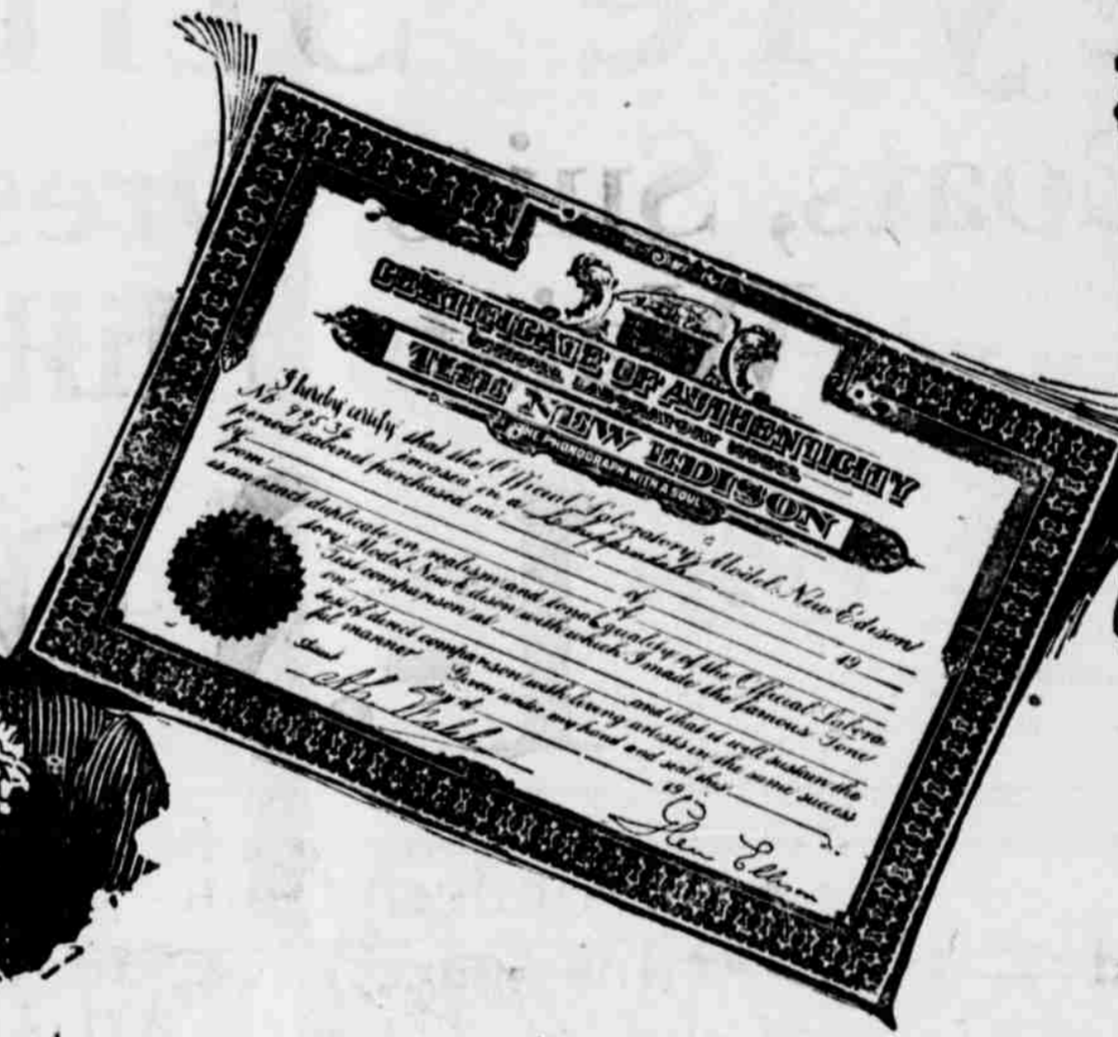 CERTIFICATE OF AUTHENTICITY
OFFICIAL LABORATORY MODEL
THE NEW EDISON
THE PHONOGRAPH WITH A SOUL
I hereby certify that the Official Laboratory Model New Edison
No. 9953 encased in a
period cabinet purchased on 19
by of
from of
is an exact duplicate in realism and tonal quality of the Official Labora-
tory Model New Edison with which I made the famous Tone
Test comparison at
on and that it will sustain the
test of direct comparison with living artists in the same success
ful manner Given under my hand and seal this
day of 19
Glen Ellison